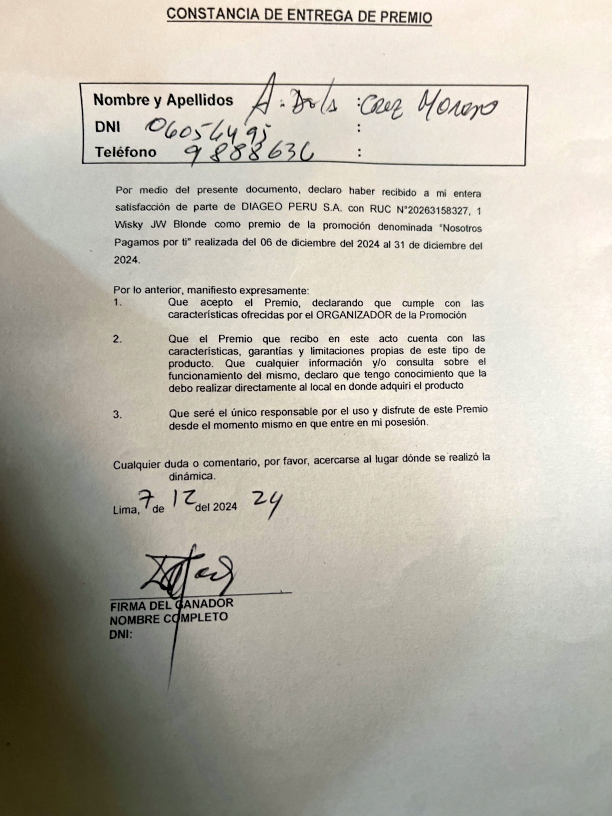 CONSTANCIA DE ENTREGA DE PREMIO
Nombre y Apellidos : Cruz Moreno
DNI 06056495 :
Teléfono 9888636 :
Por medio del presente documento, declaro haber recibido a mi entera
satisfacción de parte de DIAGEO PERU S.A. con RUC N°20263158327, 1
Wisky JW Blonde como premio de la promoción denominada "Nosotros
Pagamos por ti" realizada del 06 de diciembre del 2024 al 31 de diciembre del
2024.
Por lo anterior, manifiesto expresamente:
1. Que acepto el Premio, declarando que cumple con las
características ofrecidas por el ORGANIZADOR de la Promoción
2. Que el Premio que recibo en este acto cuenta con las
características, garantías y limitaciones propias de este tipo de
producto. Que cualquier información y/o consulta sobre el
funcionamiento del mismo, declaro que tengo conocimiento que la
debo realizar directamente al local en donde adquiri el producto
3. Que seré el único responsable por el uso y disfrute de este Premio
desde el momento mismo en que entre en mi posesión.
Cualquier duda o comentario, por favor, acercarse al lugar dónde se realizó la
dinámica.
Lima, 7 de 12 del 2024 24
FIRMA DEL GANADOR
NOMBRE COMPLETO
DNI: